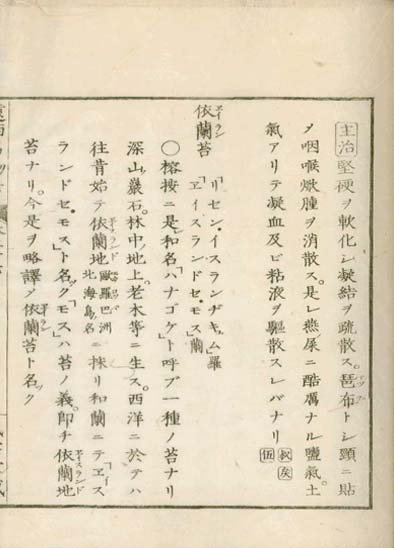 主治堅硬ヲ軟化シ凝結ヲ疏散ス。琶布トシ頸ニ貼
メ咽喉焮腫ヲ消散ス。是レ燕屎ニ酷厲ナル鹽氣。土
氣アリテ凝血及ビ粘液ヲ驅散スレバナリ
依蘭苔 「リセン・イスランヂキュム」羅
「ヱイスランドセ・モス」蘭
○榕按ニ是レ和名「ハナゴケ」ト呼ブ一種ノ苔ナリ
深山ノ巖石。林中ノ地上。老木等ニ生ス。西洋ニ於テハ
往昔始テ依蘭地 歐羅巴洲北海島ノ名 ニ採リ和蘭ニテ「ヱイス
ランドセ・モス」ト名ク「モス」ハ苔ノ義。即チ依蘭地
苔ナリ。今是ヲ略譯メ依蘭苔ト名ク